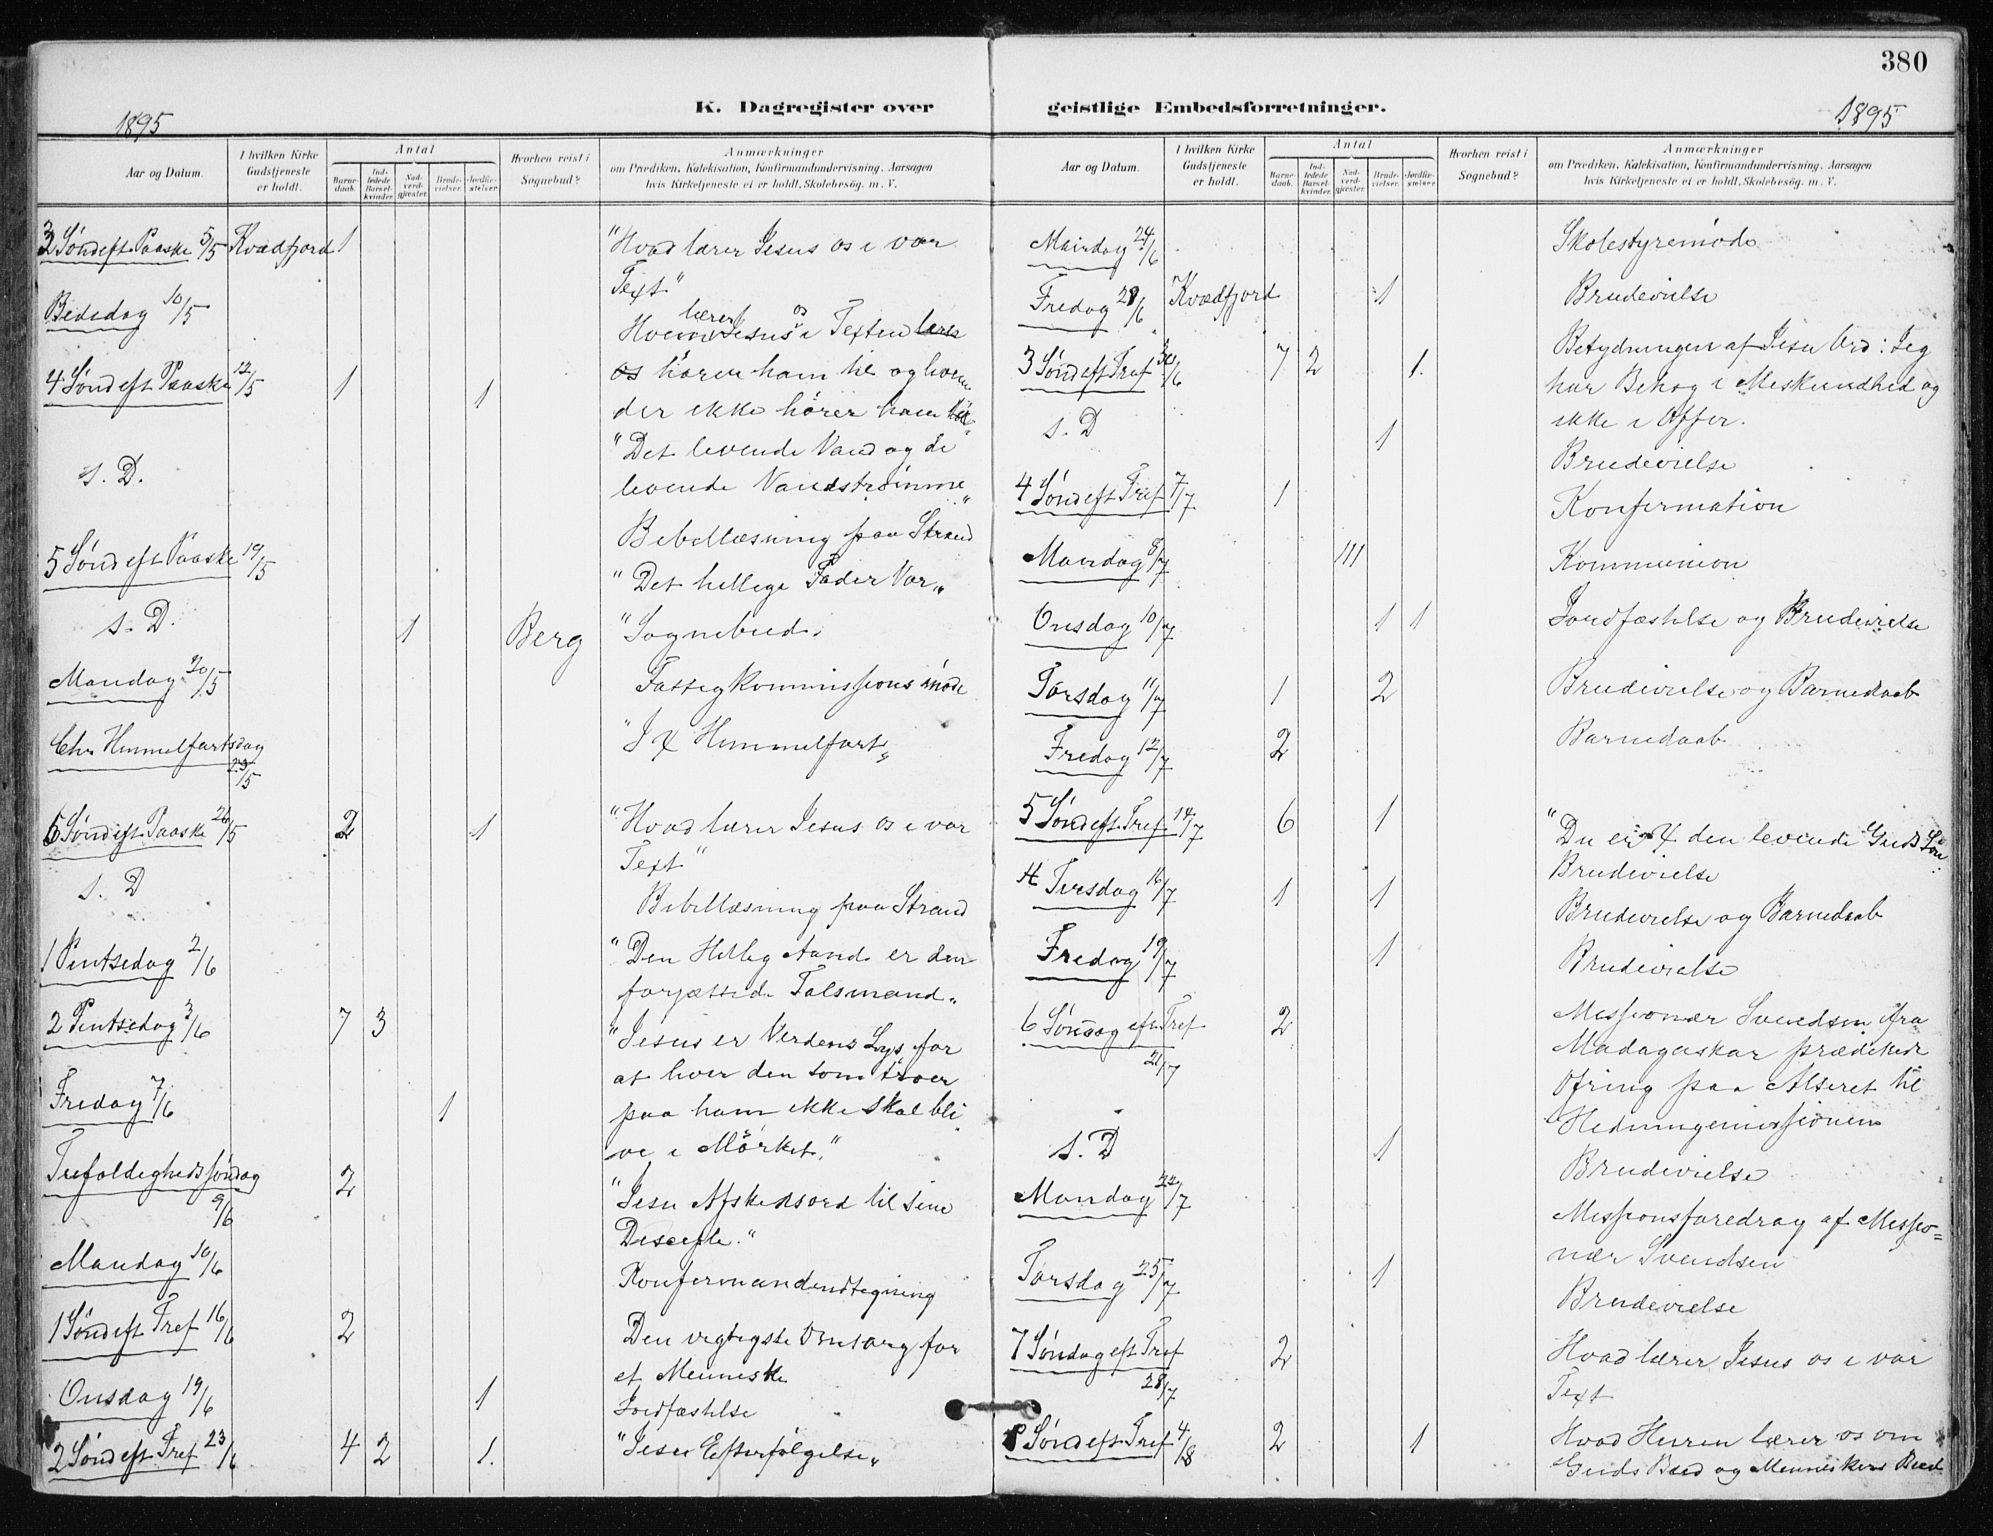 380
K. Dagregister over geistlige Embedsforretninger.
1895
1895
Aar og Datum. I hvilken Kirke Gudstjeneste er holdt. Antal Barnedaab. Indledede Barselkvinder. Nadverdgjæster. Brudevielser. Jordfæstelser Hvorhen reist i Sognebud? Anmærkninger
om Prædiken, Katekisation, Konfirmandundervisning, Aarsagen
hvis Kirketjeneste ei er holdt, Skolebesög. m. V.
3 Sønd eft Paaske 5/5 Kvædfjord 1 "Hvad lærer Jesus os i vor
Text"
Bededag 10/5
Hvem lærer Jesus os i Texten
4 Sønd eft Paaske 12/5 1 1
os hører ham til og hvem
der ikke hører ham til"
s. D. "Det levende Vand og de
levende Vandstrømme"
Bibellæsning paa Strand
5 Sønd eft Paaske 19/5 "Det hellige Fader Vor"
s. D. 1 Berg "Sognebud.
Mandag 20/5 Fattigkommissionsmøde
Chr Himmelfartsdag 23/5 "J X Himmelfart"
6 Sønd eft Paaske 26/5 2 1 "Hvad lærer Jesus os i vor
Text"
s. D Bibellæsning paa Strand
1 Pintsedag 2/6 "Den Hellig Aand er den
forjættede Talsmand"
2 Pintsedag 3/6 7 3 "Jesus er Verdens Lys for
at hver den som troer
Fredag 7/6 1 paa ham ikke skal bli
ve i Mörket."
Trefoldighedssøndag 9/6 2 "Jesu Afskedsord til sine
Disciple."
Mandag 10/6 Konfermandudtegning
1 Sønd eft Tref 16/6 2 Den vigtigste Omsorg for
et Menneske
Onsdag 19/6 1 Jordfæstelse
2 Sønd eft Tref 23/6 4 2 1. "Jesu Efterfølgelse"
Aar og Datum. I hvilken Kirke Gudstjeneste er holdt. Antal Barnedaab. Indledede Barselkvinder. Nadverdgjæster. Brudevielser. Jordfæstelser Hvorhen reist i Sognebud? Anmærkninger
om Prædiken, Katekisation, Konfirmandundervisning, Aarsagen
hvis Kirketjeneste ei er holdt, Skolebesög. m. V.
Mandag 24/6 Skolestyremöde
Fredag 28/6 Kvædfjord 1 Brudevielse
3 Sønd eft Tref 30/6 7 2 1. Betydningen af Jesu Ord: Jeg
har Behag i Miskundhed og
ikke i Offer.
s. D 1 Brudevielse
4 Sønd eft Tref 7/7 1 Konfermation
Mandag 8/7 111 Kommunion
Onsdag 10/7 1 1 Jordfæstelse og Brudevielse
Torsdag 11/7 1 2 Brudevielse og Barnedaab
Fredag 12/7 2 Barnedaab
5 Sønd eft Tref 14/7 6 1 "Du er X den levende Guds Søn
Brudevielse
Tirsdag 16/7 1 1 Brudevielse og Barnedaab
Fredag 19/7 1 Brudevielse
6 Søndag eft Tref 21/7 2 Missionær Svendsen fra
Madagaskar prædikede
Ofring paa Alteret til
Hedningemissionen
s. D 1 Brudevielse
Mandag 22/7 Missionsforedrag af Missio=
nær Svendsen
Torsdag 25/7 1 Brudevielse
7 Søndag eft Tref 28/7 2 Hvad lærer Jesus os i vor
Text
8 Sønd eft Tref 4/8 2 1 Hvad Herren lærer os om
Guds Bud og Menneskers Bud